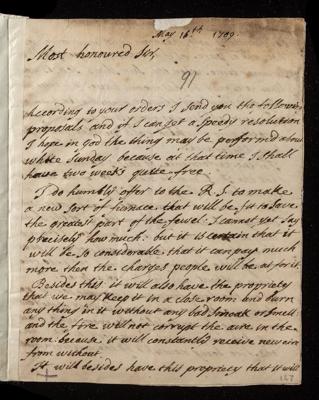 May 16th 1709.
Most honoured Sir,
91
According to your orders I send you the following
proposals and if I can get a speedy resolution
I hope in God the thing may be performed about
white Sunday because at that time I shall
have two weeks quite free.
I do humbly offer to the R. S. to make
a new sort of furnace that will be fit to save
the greatest part of the fewel: I cannot yet say
precisely how much: but it is certain that it
will be so considerable that it can pay much
more then the charges people will be at for it.
Besides this it will also have the propriety
that we may keep it in a close room and burn
any thing in it without any bad smoak or smell:
and the fire will not corrupt the aire in the
room because it will constantly receive new air
from without.
It will besides have this propriety that it will
127